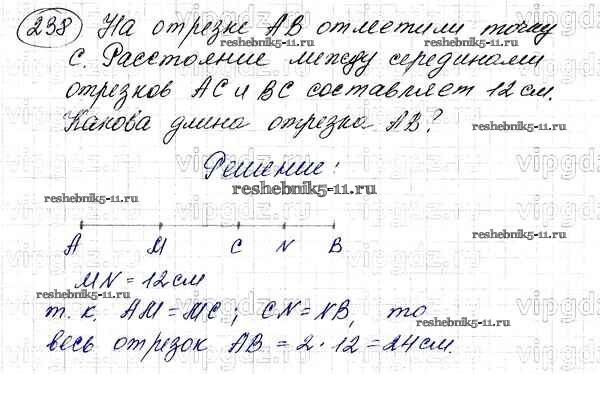 238 На отрезке AB отметили точку
C. Расстояние между серединами
отрезков AC и BC составляет 12 см.
Какова длина отрезка AB?
Решение:
A M C N B
MN = 12 см
т. к. AM = MC; CN = NB, то
весь отрезок AB = 2 · 12 = 24 см.
reshebnik5-11.ru
reshebnik5-11.ru
reshebnik5-11.ru
reshebnik5-11.ru
reshebnik5-11.ru
reshebnik5-11.ru
reshebnik5-11.ru
reshebnik5-11.ru
vipgdz.ru